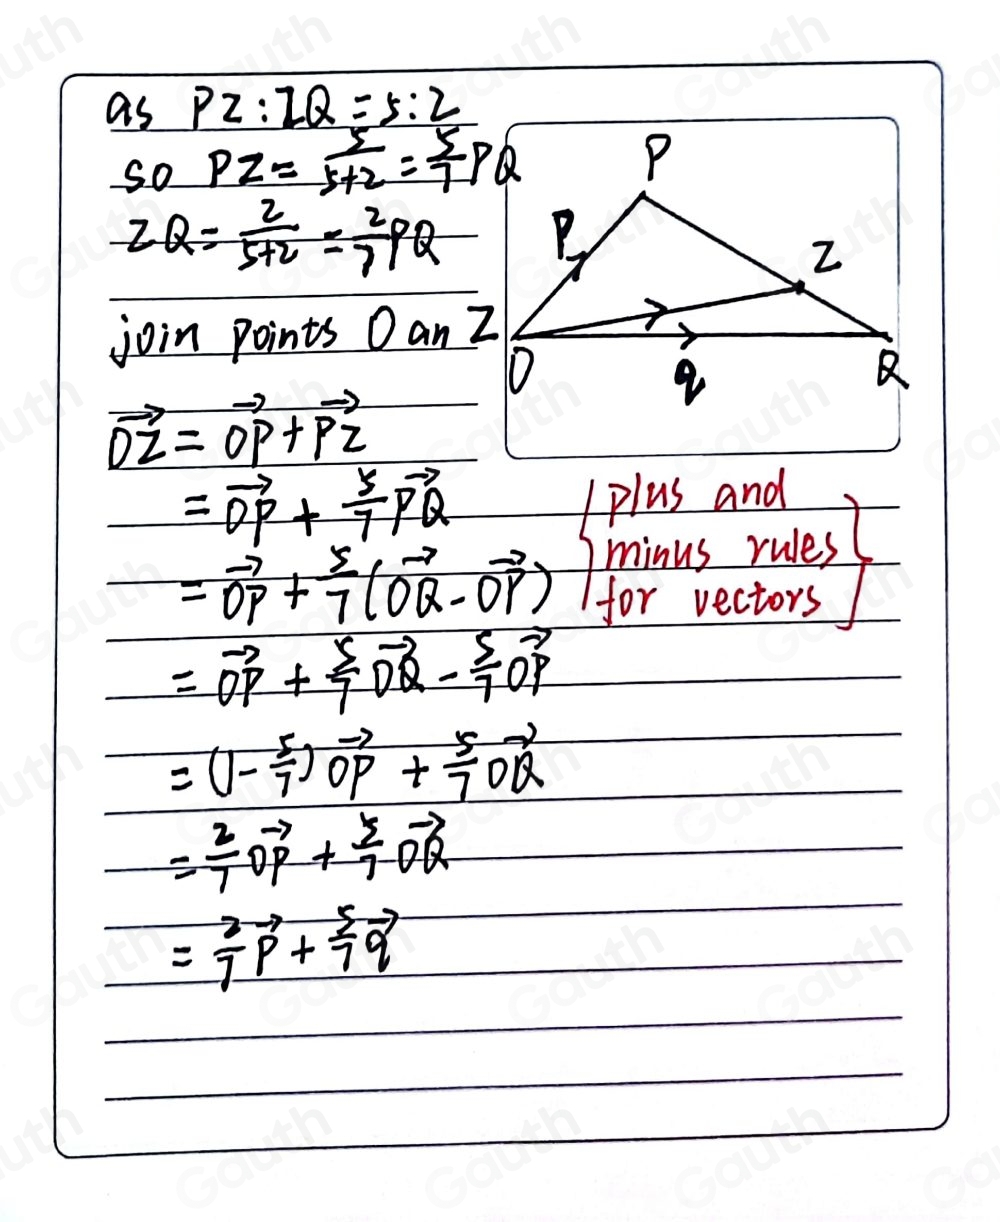 as PZ:ZQ = 5:2
so PZ = 5/(5+2) = 5/7 PQ
ZQ = 2/(5+2) = 2/7 PQ
join points O an Z
P
P
Z
O
q
Q
→OZ = →OP + →PZ
= →OP + 5/7 →PQ
= →OP + 5/7 (→OQ - →OP)
{ plus and
minus rules
for vectors }
= →OP + 5/7 →OQ - 5/7 →OP
= (1 - 5/7) →OP + 5/7 →OQ
= 2/7 →OP + 5/7 →OQ
= 2/7 →P + 5/7 →q
Gauth